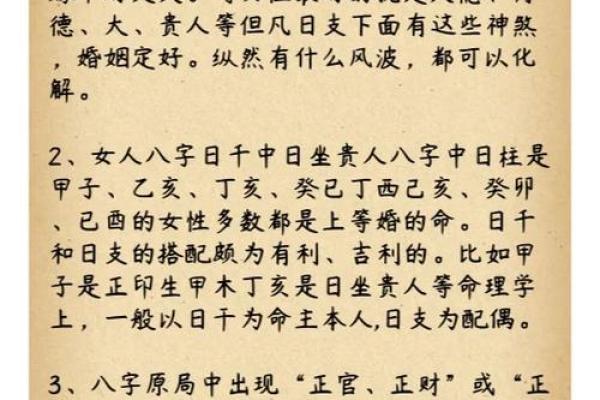 德、大、贵人等但凡日支下面有这些神煞
，婚姻定好。纵然有什么风波，都可以化
解。
2、女人八字日千中日坐贵人八字中日柱是
甲子、乙亥、丁亥、癸已丁西己亥、癸卯
、己酉的女性多数都是上等婚的命。日千
和日支的搭配颇为有利、吉利的。比如甲
子是正印生甲木丁亥是日坐贵人等命理学
上，一般以日干为命主本人,日支为配偶。
3、八字原局中出现“正官、正财”或“正